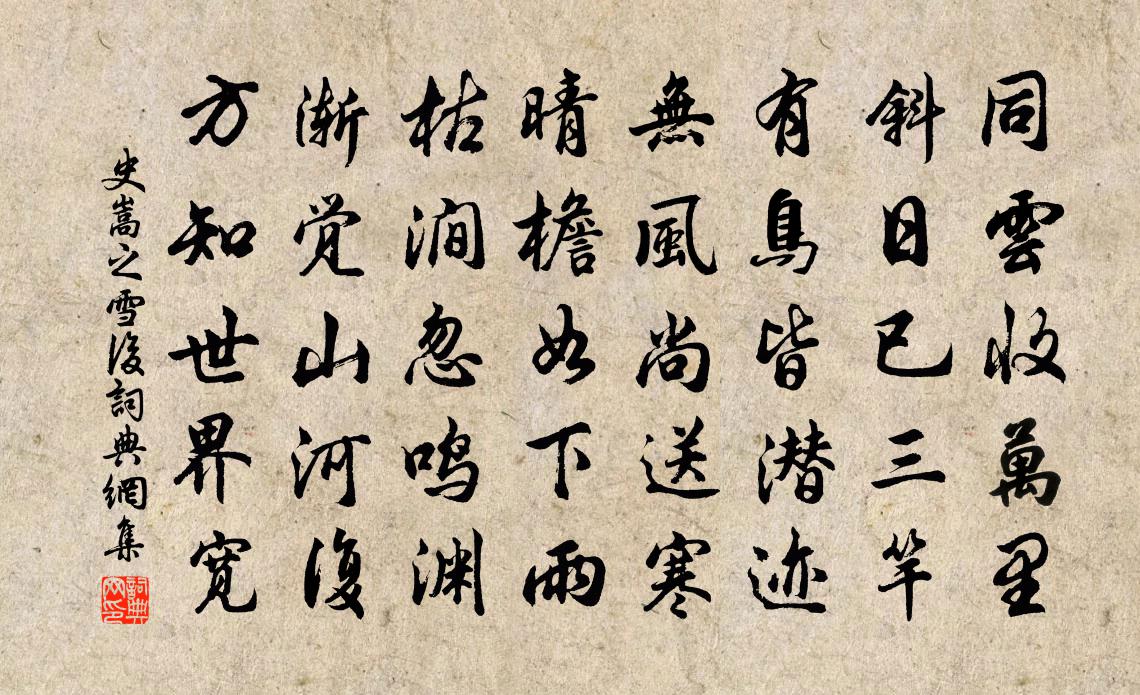 同雲收萬里
斜日已三竿
有鳥皆潜迹
無風尚送寒
晴檐如下雨
枯澗忽鸣渊
渐觉山河復
方知世界寬
史嵩之雪後詞典網集
詞典網印